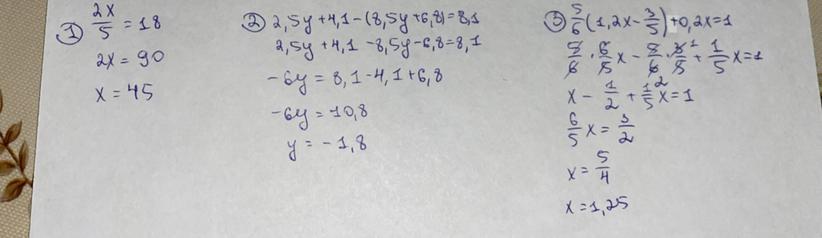 ① 2x/5 = 18
2x = 90
x = 45
② 2,5y + 4,1 - (8,5y + 6,8) = 8,1
2,5y + 4,1 - 8,5y - 6,8 = 8,1
-6y = 8,1 - 4,1 + 6,8
-6y = 10,8
y = -1,8
③ 5/6 (1,2x - 3/5) + 0,2x = 1
5/6 · 6/5 x - 5/6 · 3¹/5 + 1/5 x = 1
x - 1/2 + 1/5 x = 1
6/5 x = 3/2
x = 5/4
x = 1,25